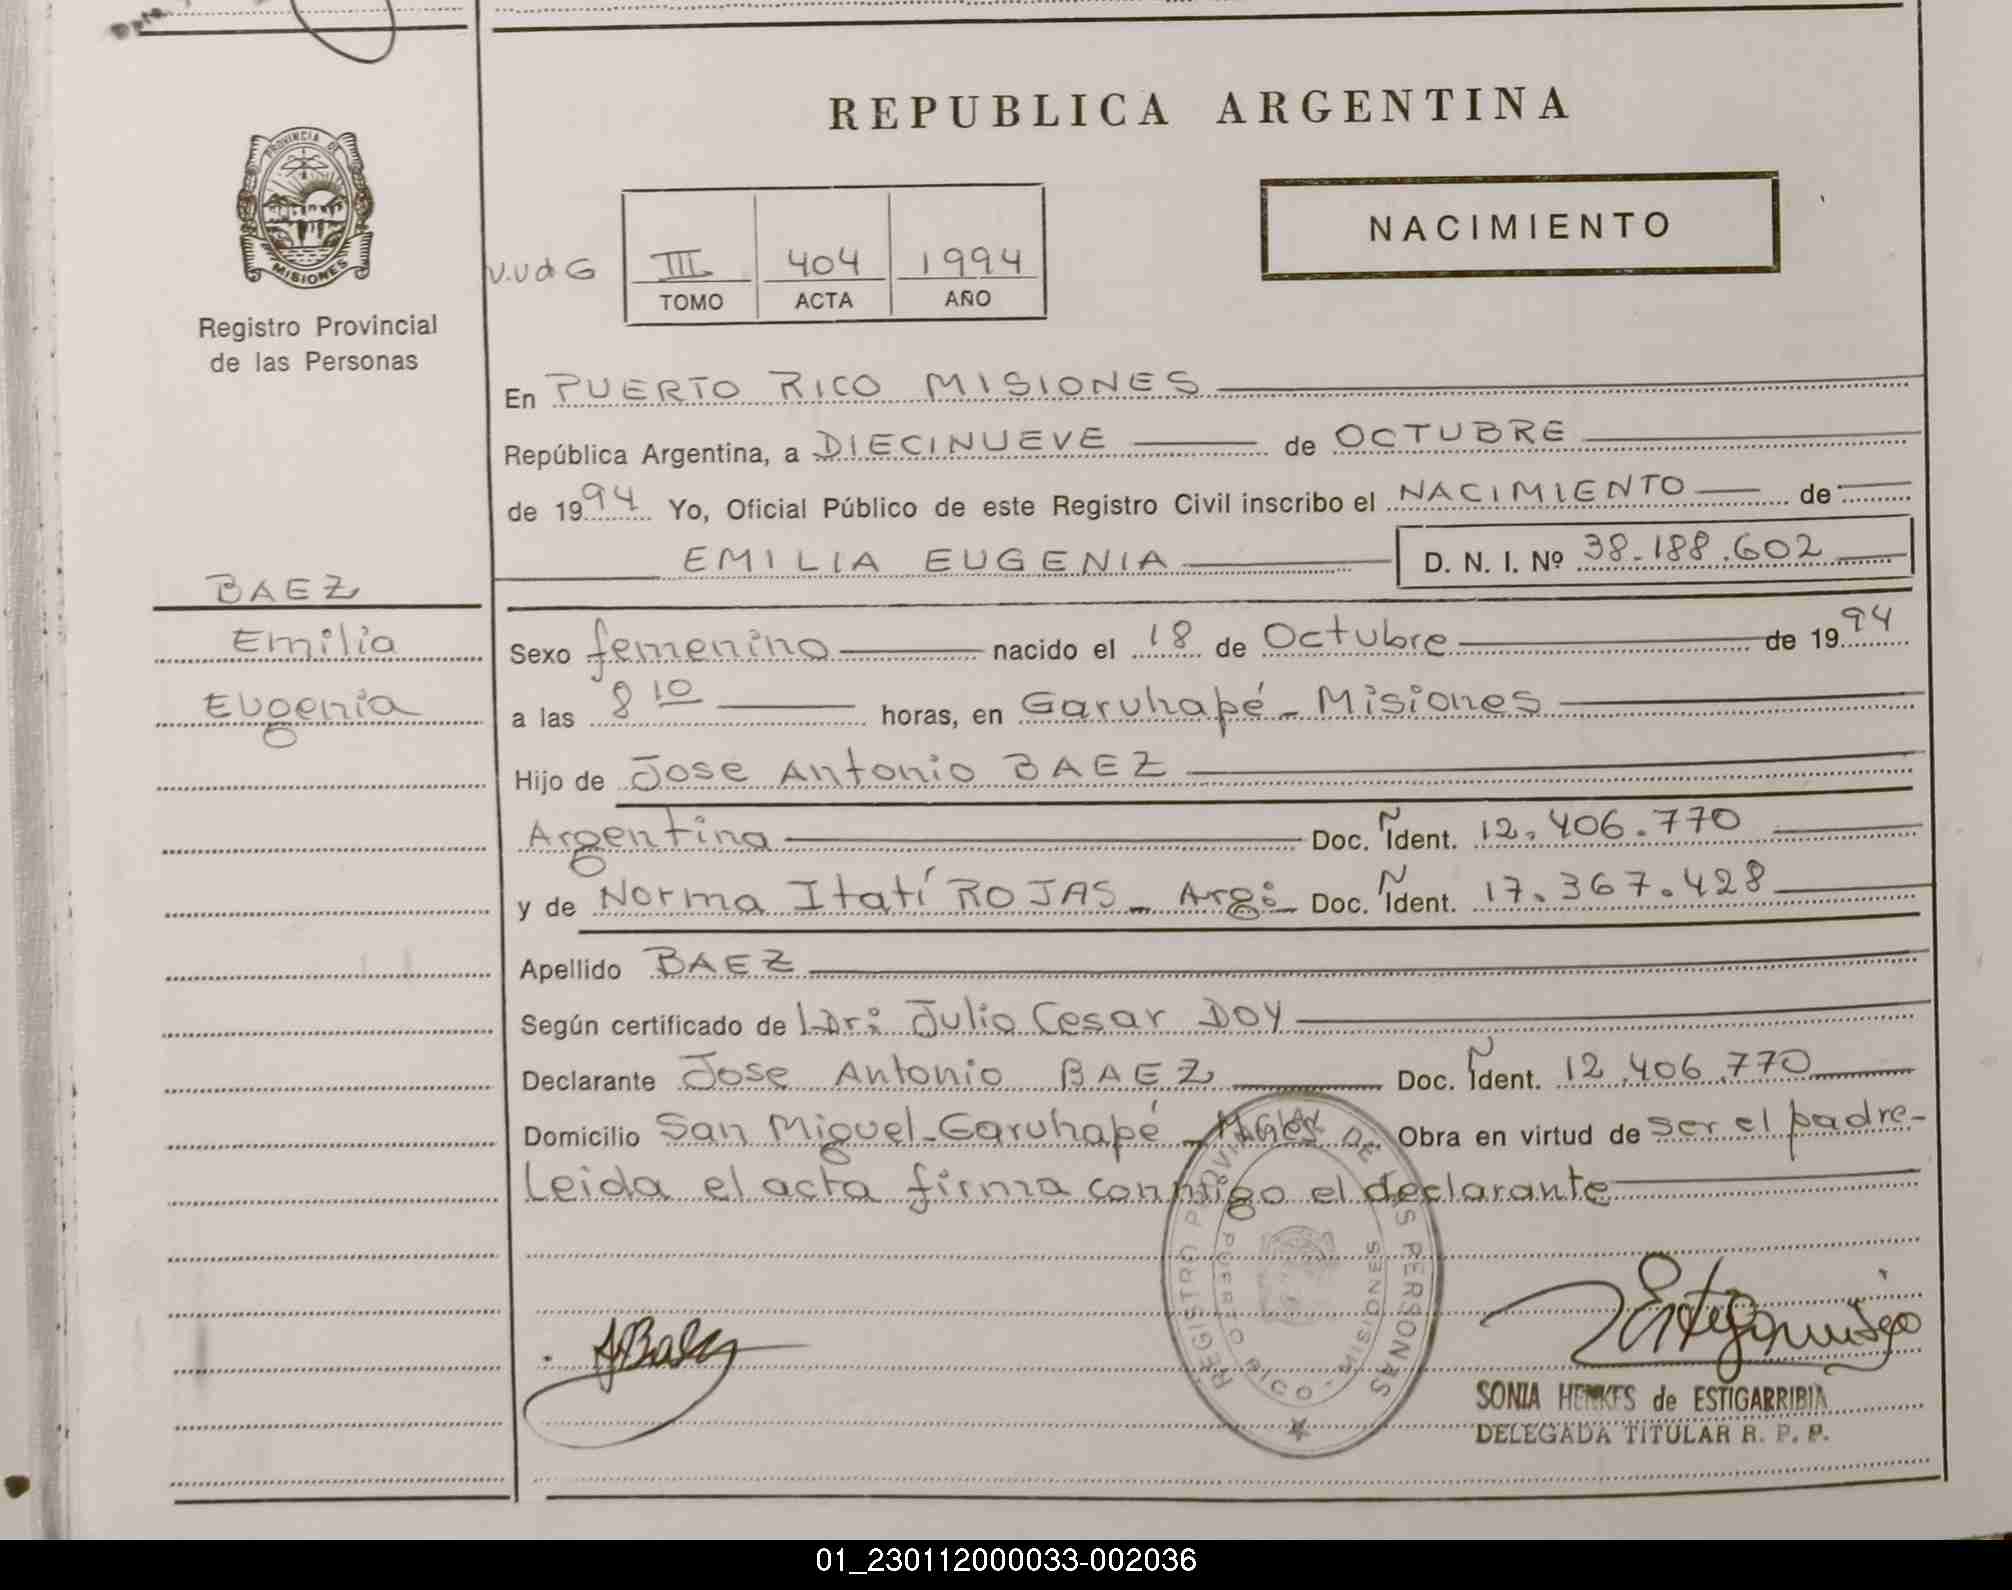 REPUBLICA ARGENTINA
PROVINCIA DE MISIONES
Registro Provincial
de las Personas
NACIMIENTO
V.UdG
III 404 1994
TOMO ACTA AÑO
En PUERTO RICO MISIONES
República Argentina, a DIECINUEVE de OCTUBRE
de 1994 Yo, Oficial Público de este Registro Civil inscribo el NACIMIENTO de
EMILIA EUGENIA D. N. I. Nº 38.188.602
BAEZ
Emilia
Eugenia
Sexo femenino nacido el 18 de Octubre de 1994
a las 8 10 horas, en Garuhapé - Misiones
Hijo de Jose Antonio BAEZ
Argentina Doc. Ñ Ident. 12.406.770
y de Norma Itatí ROJAS - Arg: Doc. Ñ Ident. 17.367.428
Apellido BAEZ
Según certificado de Dr: Julio Cesar DOY
Declarante Jose Antonio BAEZ Doc. Ñ Ident. 12.406.770
Domicilio San Miguel - Garuhapé - Mnes Obra en virtud de ser el padre-
Leida el acta firma conmigo el declarante
REGISTRO PROVINCIAL DE LAS PERSONAS
PUERTO RICO - MISIONES
SONIA HENKES de ESTIGARRIBIA
DELEGADA TITULAR R. P. P.
01_230112000033-002036